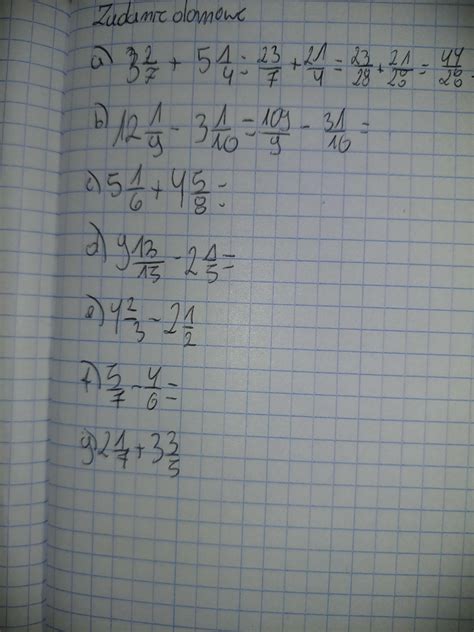 Zadanie domowe
a) 3 2/7 + 5 1/4 = 23/7 + 21/4 = 23/28 + 21/28 = 44/28
b) 12 1/9 - 3 1/10 = 109/9 - 31/10 =
c) 5 1/6 + 4 5/8 =
d) 9 13/15 - 2 1/5 =
e) 4 2/3 - 2 1/2
f) 5/7 - 4/6 =
g) 2 1/7 + 3 3/5